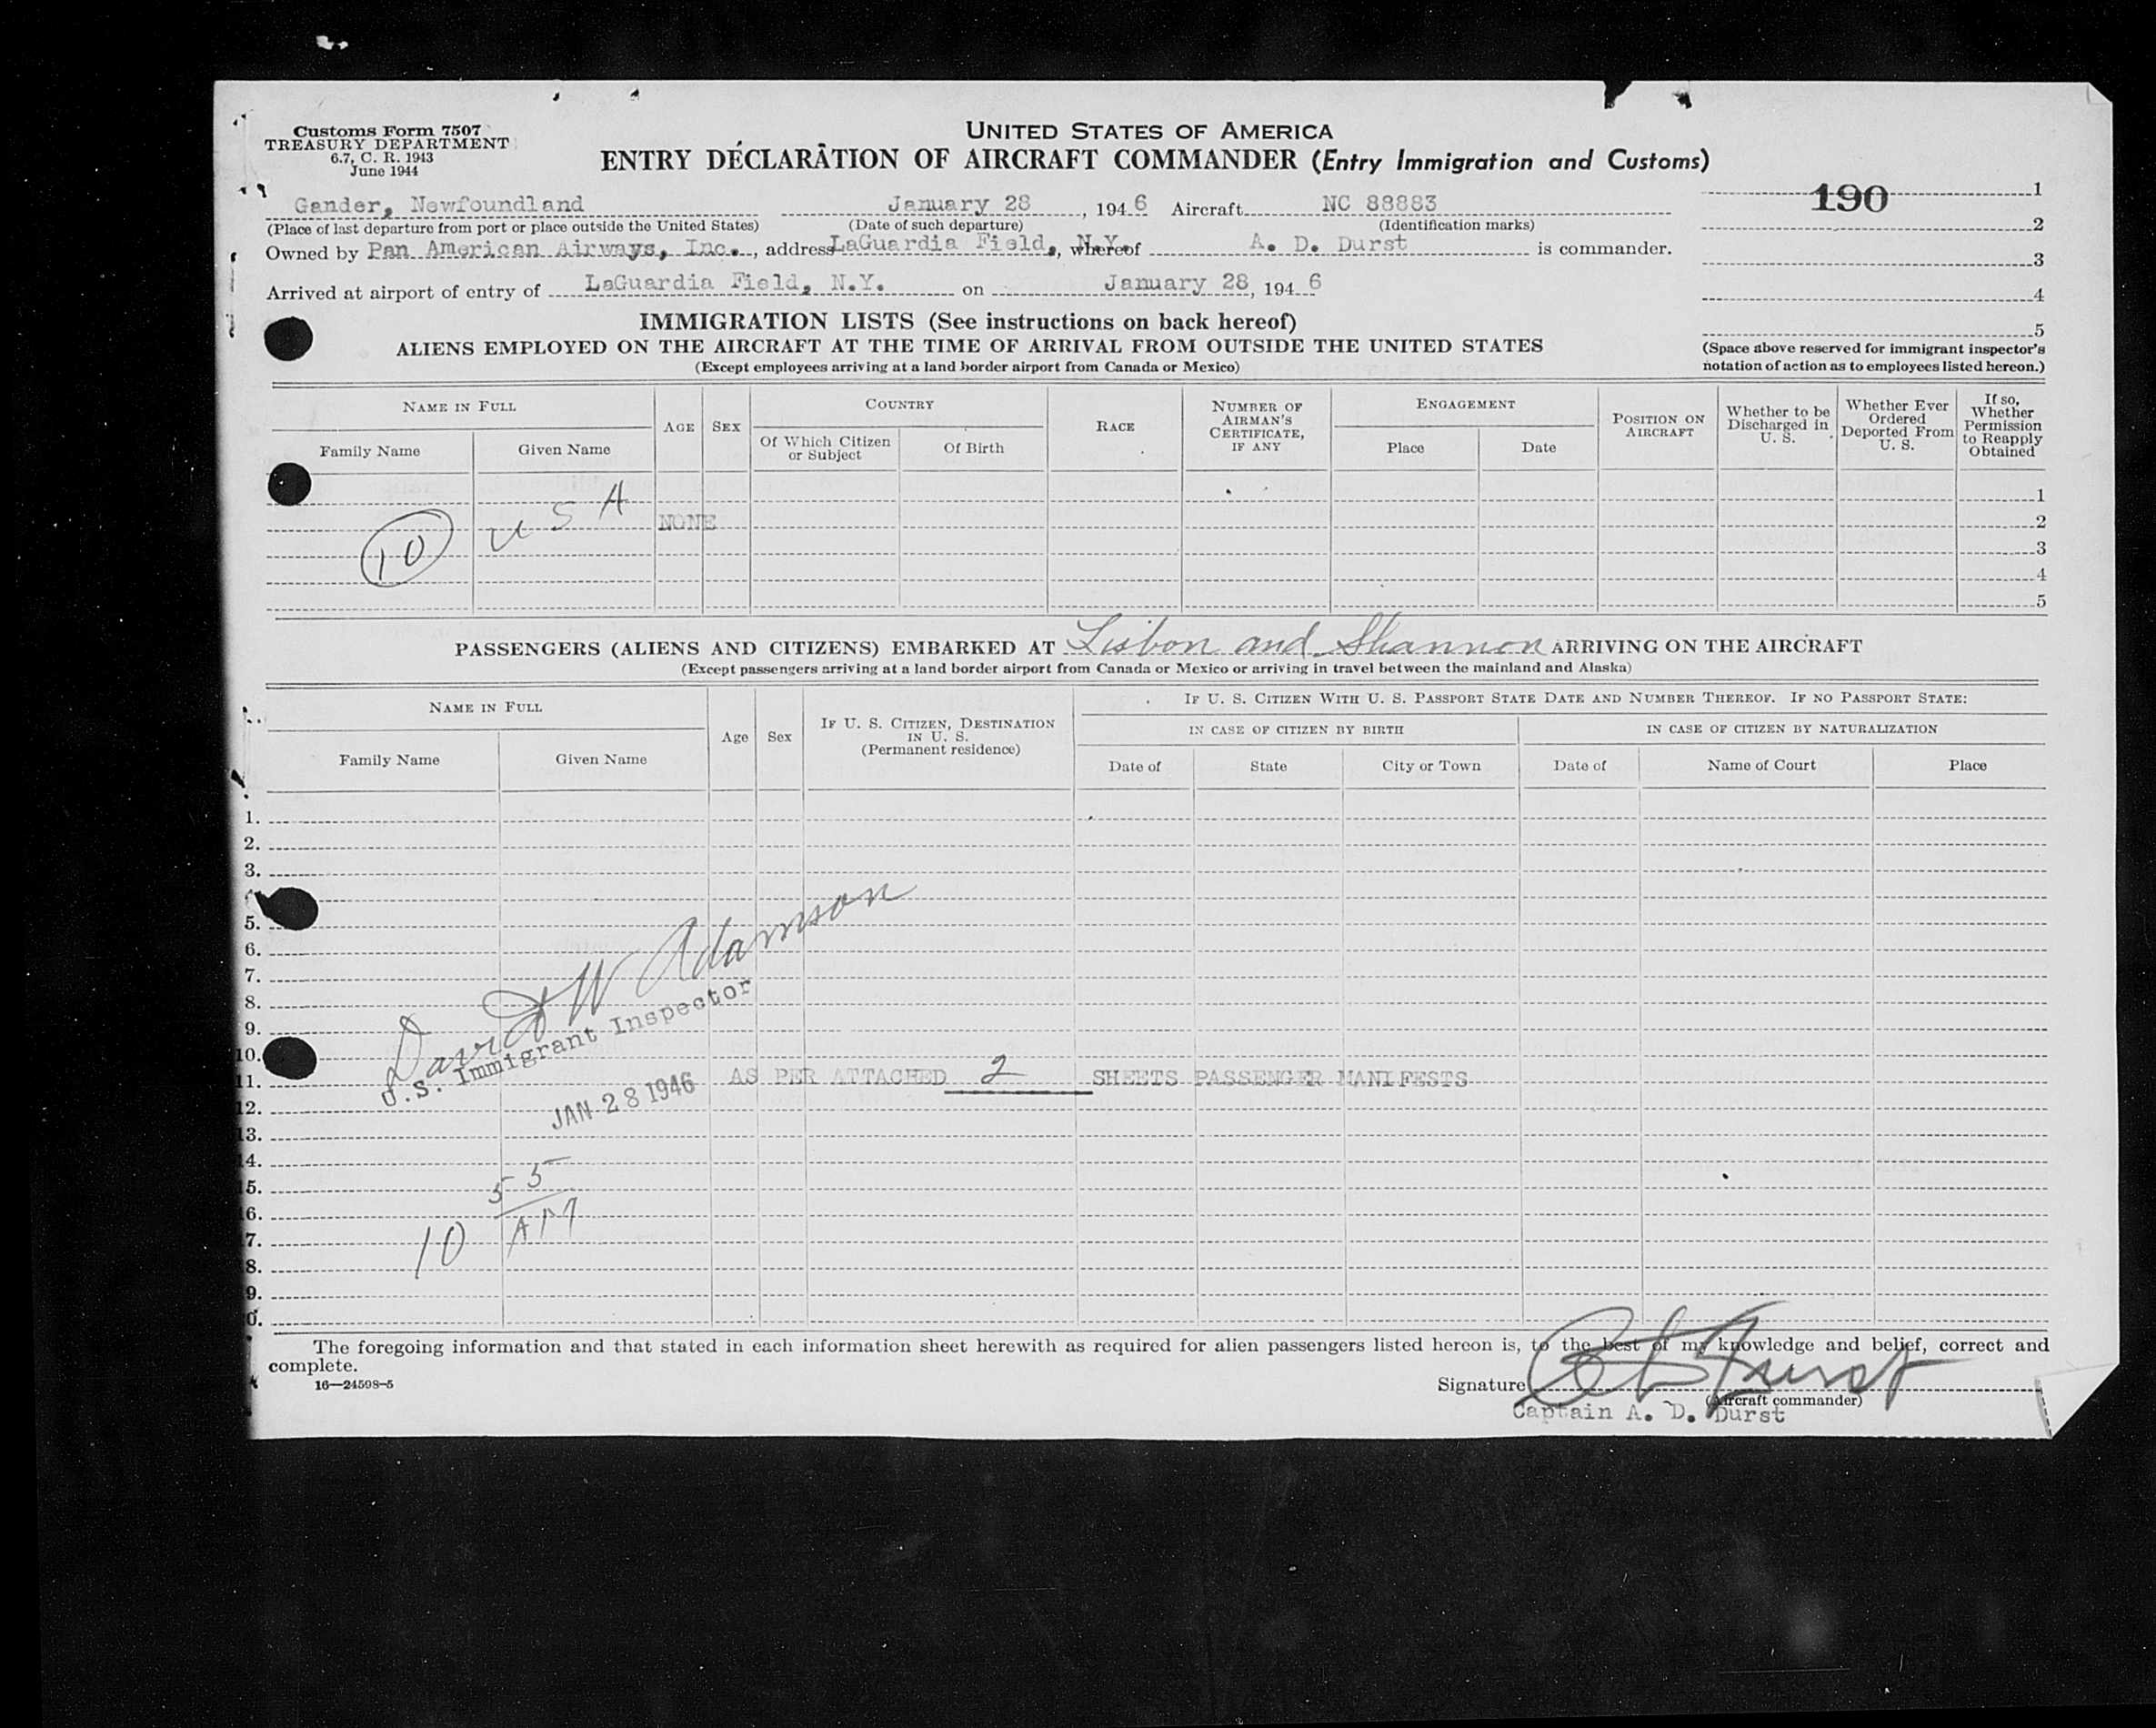 Customs Form 7507
TREASURY DEPARTMENT
6.7, C. R. 1943
June 1944
UNITED STATES OF AMERICA
ENTRY DECLARATION OF AIRCRAFT COMMANDER (Entry Immigration and Customs)
Gander, Newfoundland January 28, 1946 Aircraft NC 88883
(Place of last departure from port or place outside the United States) (Date of such departure) (Identification marks)
Owned by Pan American Airways, Inc., address LaGuardia Field, N.Y., whereof A. D. Durst is commander.
Arrived at airport of entry of LaGuardia Field, N.Y. on January 28, 1946
190 1
2
3
4
5
(Space above reserved for immigrant inspector's
notation of action as to employees listed hereon.)
IMMIGRATION LISTS (See instructions on back hereof)
ALIENS EMPLOYED ON THE AIRCRAFT AT THE TIME OF ARRIVAL FROM OUTSIDE THE UNITED STATES
(Except employees arriving at a land border airport from Canada or Mexico)
NAME IN FULL
Family Name Given Name
AGE SEX
COUNTRY
Of Which Citizen or Subject Of Birth
RACE
NUMBER OF AIRMAN'S CERTIFICATE, IF ANY
ENGAGEMENT
Place Date
POSITION ON AIRCRAFT
Whether to be Discharged in U. S.
Whether Ever Ordered Deported From U. S.
If so, Whether Permission to Reapply Obtained
1
10 U S A NONE 2
3
4
5
PASSENGERS (ALIENS AND CITIZENS) EMBARKED AT Lisbon and Shannon ARRIVING ON THE AIRCRAFT
(Except passengers arriving at a land border airport from Canada or Mexico or arriving in travel between the mainland and Alaska)
NAME IN FULL
Family Name Given Name
Age Sex
IF U. S. CITIZEN, DESTINATION IN U. S.
(Permanent residence)
IF U. S. CITIZEN WITH U. S. PASSPORT STATE DATE AND NUMBER THEREOF. IF NO PASSPORT STATE:
IN CASE OF CITIZEN BY BIRTH IN CASE OF CITIZEN BY NATURALIZATION
Date of State City or Town Date of Name of Court Place
1.
2.
3.
5.
6.
7.
8.
9.
10.
11.
12.
13.
14.
15.
16.
7.
8.
9.
0.
David W Adamson
U.S. Immigrant Inspector
JAN 28 1946
AS PER ATTACHED 2 SHEETS PASSENGER MANIFESTS
10 55
AM
The foregoing information and that stated in each information sheet herewith as required for alien passengers listed hereon is, to the best of my knowledge and belief, correct and
complete.
16—24598-5
Signature A D Durst
(Aircraft commander)
Captain A. D. Durst